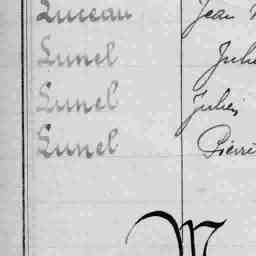 Luceau Jean
Lunel
Lunel Julien
Lunel Pierre
M